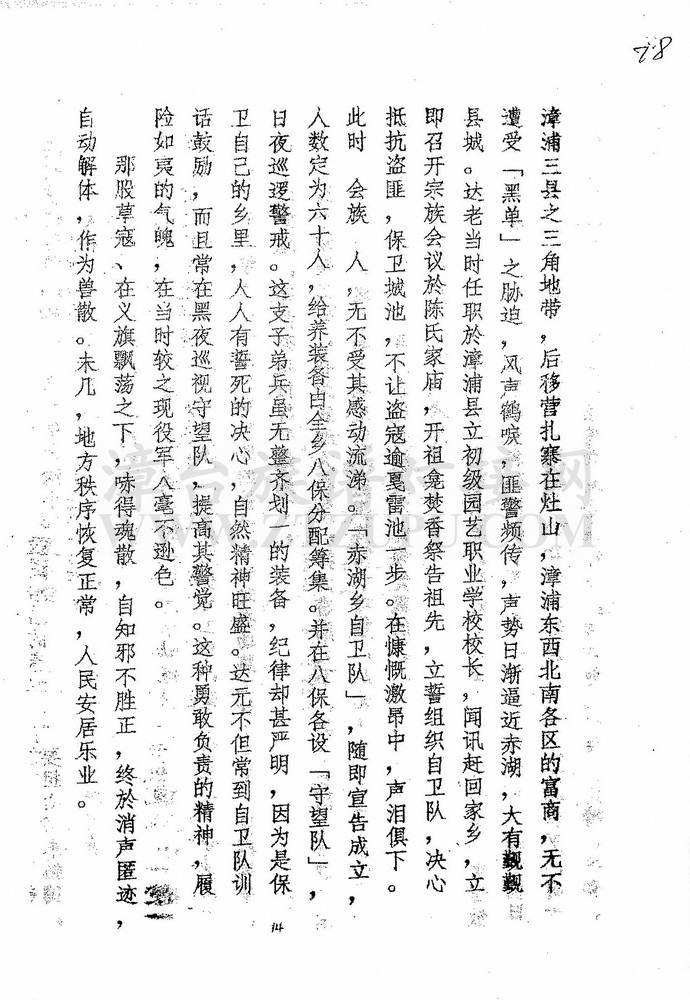 漳浦三县之三角地带，后移营扎寨在灶山，漳浦东西北南各区的富商，无不
遭受「黑单」之胁迫，风声鹤唳，匪警频传，声势日渐逼近赤湖，大有觐觐
县城。达老当时任职於漳浦县立初级园艺职业学校校长，闻讯赶回家乡，立
即召开宗族会议於陈氏家庙，开祖龛焚香祭告祖先，立誓组织自卫队，决心
抵抗盗匪，保卫城池，不让盗寇逾戛雷池一步。在慷慨激昂中，声泪俱下。
此时 会族 人，无不受其感动流涕。「赤湖乡自卫队」，随即宣告成立，
人数定为六十人，给养装备由全乡八保分配筹集。并在八保各设「守望队」，
日夜巡逻警戒。这支子弟兵虽无整齐划一的装备，纪律却甚严明，因为是保
卫自己的乡里，人人有誓死的决心，自然精神旺盛。达无不但常到自卫队训
话鼓励，而且常在黑夜巡视守望队，提高其警觉。这种勇敢负责的精神，履
险如夷的气魄，在当时较之现役军人毫不逊色。
那股草寇、在义旗飘荡之下，味得魂散，自知邪不胜正，终於消声匿迹，
自动解体，作为兽散。未几，地方秩序恢复正常，人民安居乐业。
14
漳台族谱对接网
WWW.ZTZUPU.COM